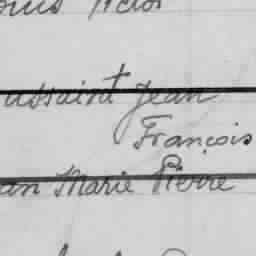 Victor
ussaint Jean
François
an Marie Pierre